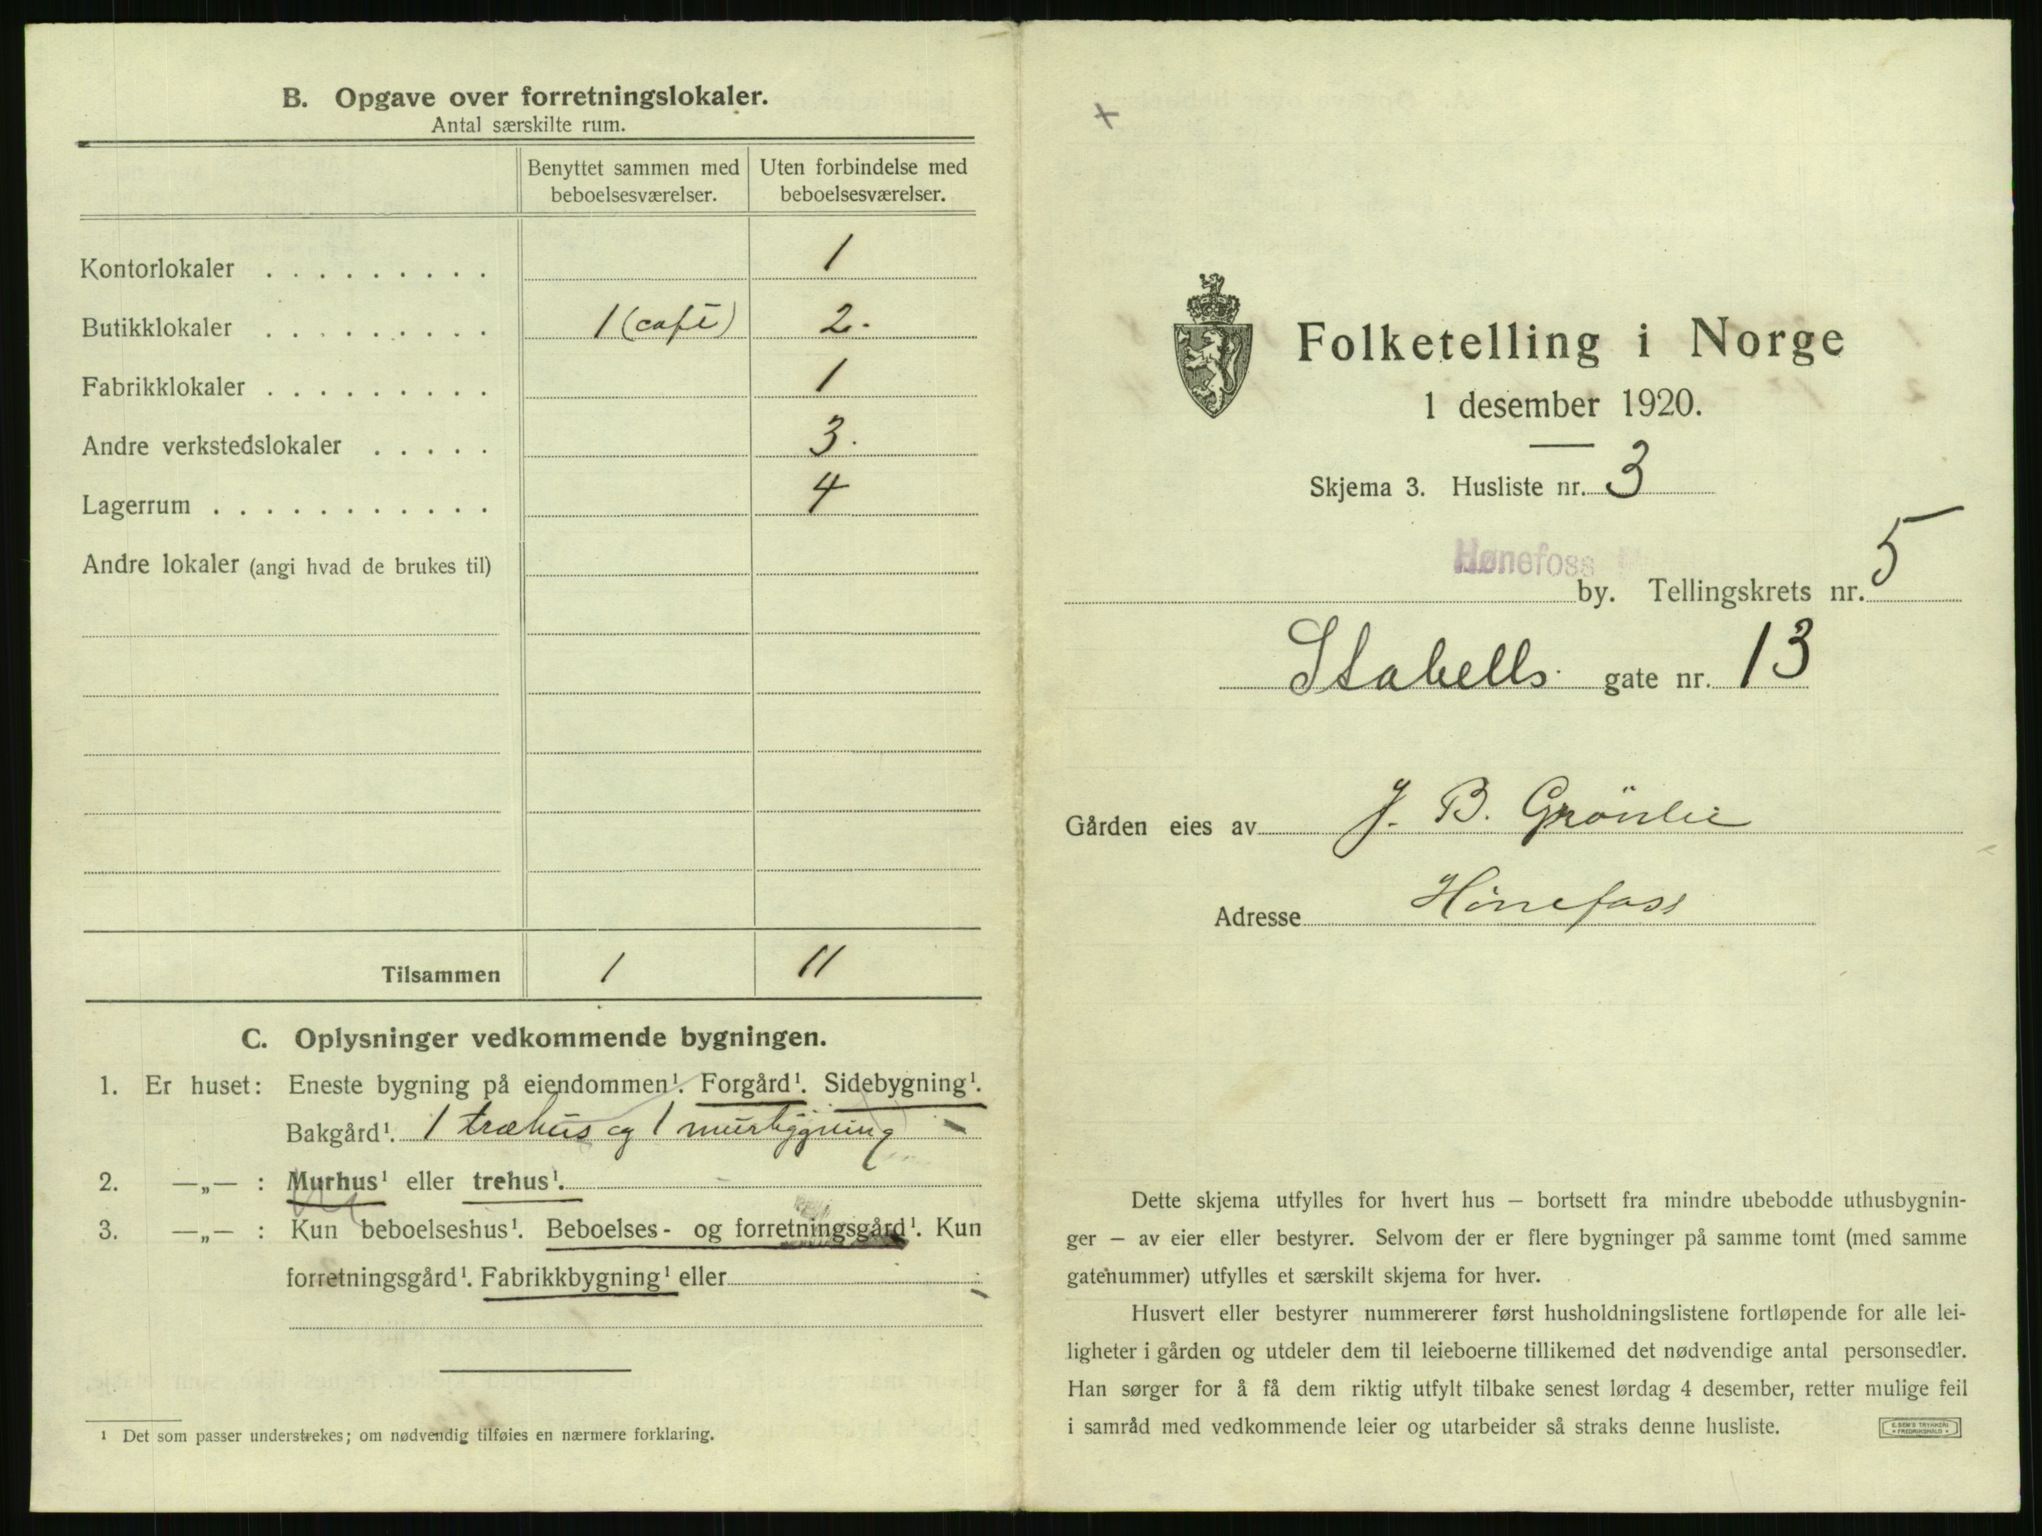 B. Opgave over forretningslokaler.
Antal særskilte rum.
Benyttet sammen med beboelsesværelser.
Uten forbindelse med beboelsesværelser.
Kontorlokaler . . . . . . . . . 1
Butikklokaler . . . . . . . . . 1 (café) 2.
Fabrikklokaler . . . . . . . . . 1
Andre verkstedslokaler . . . . . 3.
Lagerrum . . . . . . . . . . . 4
Andre lokaler (angi hvad de brukes til)
Tilsammen 1 11
C. Oplysninger vedkommende bygningen.
1. Er huset: Eneste bygning på eiendommen¹. Forgård¹. Sidebygning¹.
Bakgård¹. 1 træhus og 1 murbygning
2. —„— : Murhus¹ eller trehus¹.
3. —„— : Kun beboelseshus¹. Beboelses- og forretningsgård¹. Kun
forretningsgård¹. Fabrikkbygning¹ eller
¹ Det som passer understrekes; om nødvendig tilføies en nærmere forklaring.
Folketelling i Norge
1 desember 1920.
Skjema 3. Husliste nr. 3
Hønefoss
by. Tellingskrets nr. 5
Stabells gate nr. 13
Gården eies av J. B. Grönlie
Adresse Hönefoss
Dette skjema utfylles for hvert hus – bortsett fra mindre ubebodde uthusbygnin-
ger – av eier eller bestyrer. Selvom der er flere bygninger på samme tomt (med samme
gatenummer) utfylles et særskilt skjema for hver.
Husvert eller bestyrer nummererer først husholdningslistene fortløpende for alle lei-
ligheter i gården og utdeler dem til leieboerne tillikemed det nødvendige antal personsedler.
Han sørger for å få dem riktig utfylt tilbake senest lørdag 4 desember, retter mulige feil
i samråd med vedkommende leier og utarbeider så straks denne husliste.
E. SEM'S TRYKKERI
FREDRIKSHALD